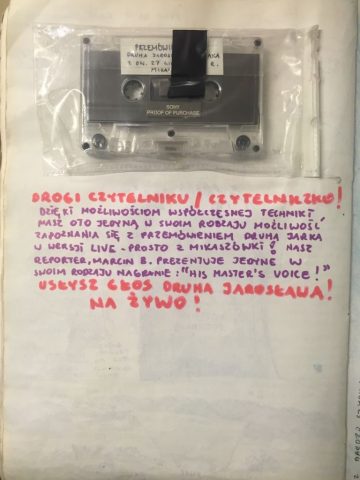 PRZEMÓWI
DRUHA JAROS
Z DN. 27
R.
MIKA
SONY
PROOF OF PURCHASE
DROGI CZYTELNIKU / CZYTELNICZKO!
DZIĘKI MOŻLIWOŚCIOM WSPÓŁCZESNEJ TECHNIKI
MASZ OTO JEDYNĄ W SWOIM RODZAJU MOŻLIWOŚĆ
ZAPOZNANIA SIĘ Z PRZEMÓWIENIEM DRUHA JARKA
W WERSJI LIVE - PROSTO Z MIKASZÓWKI! NASZ
REPORTER, MARCIN B. PREZENTUJE JEDYNE W
SWOIM RODZAJU NAGRANIE: "HIS MASTER'S VOICE!"
USŁYSZ GŁOS DRUHA JAROSŁAWA!
NA ŻYWO!